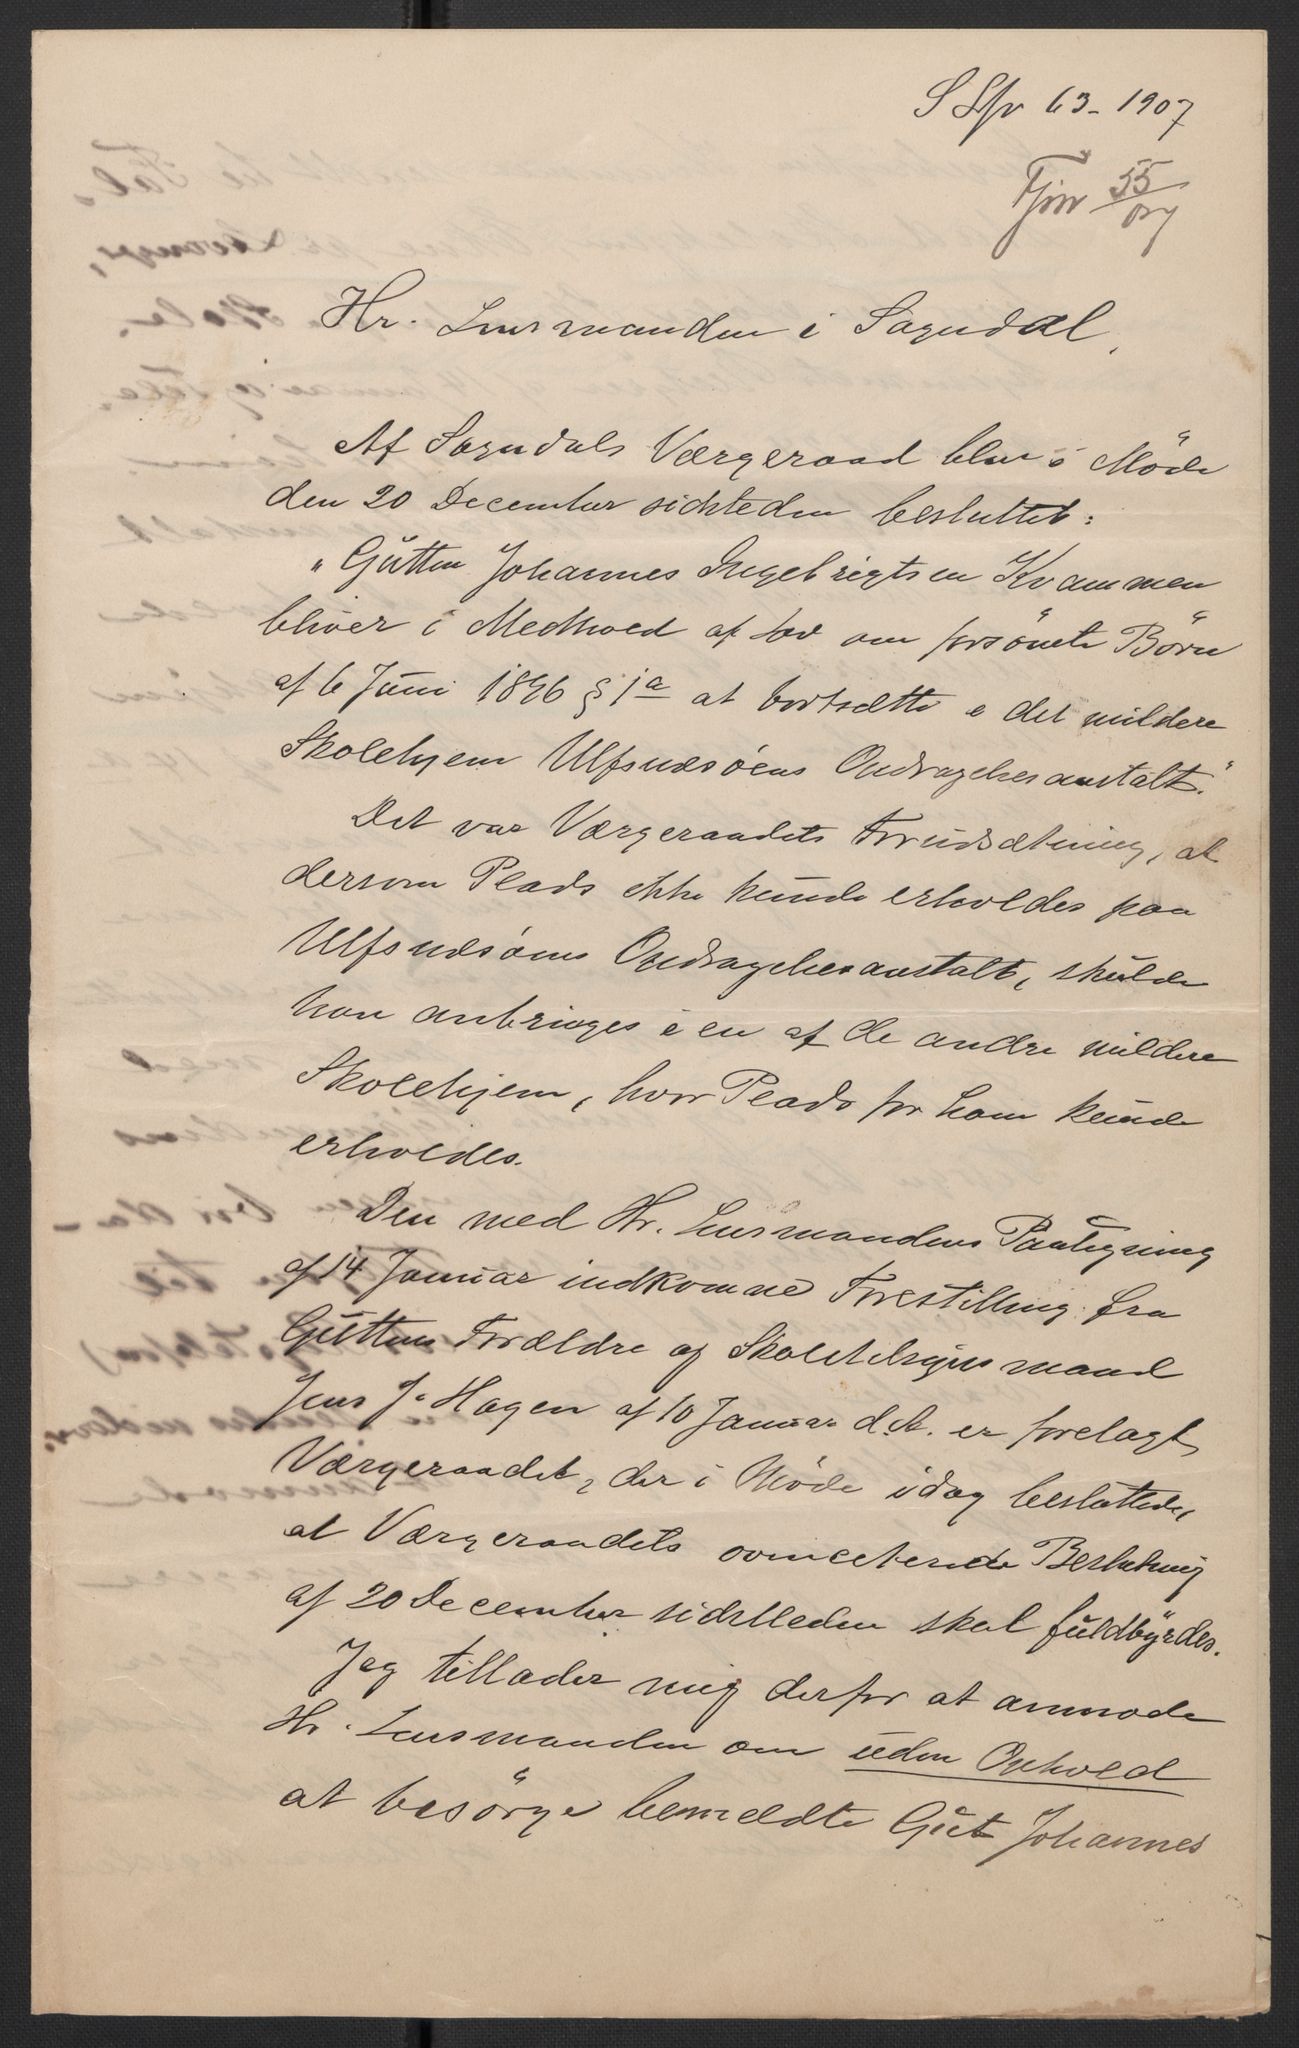 S Lfv 63 - 1907
Fjnr 55/07
Hr. Lensmanden i Sogndal,
Af Sogndals Værgeraad blev i Möde
den 20 December sidstleden besluttet:
„Gutten Johannes Ingebrigtsen Kvammen
bliver i Medhold af Lov om forsömte Börn
af 6 Juni 1896 § 1 a at bortsætte i det mildere
Skolehjem Ulfsnesöens Opdragelsesanstalt."
Det var Værgeraadets Forudsætning, at
dersom Plads ikke kunde erholdes paa
Ulfsnesöens Opdragelsesanstalt, skulde
han anbringes i en af de andre mildere
Skolehjem, hvor Plads for ham kunde
erholdes.
Den med Hr. Lensmandens Paategning
af 14 Januar indkomne Forestilling fra
Guttens Forældre og Skoletilsynsmand
Jens J. Hagen af 10 Januar d. A. er forelagt
Værgeraadet, der i Möde idag besluttede,
at Værgeraadets ovenciterede Beslutning
af 20 December sidstleden skal fuldbyrdes.
Jeg tillader mig derfor at anmode
Hr. Lensmanden om uden Ophold
at besörge bemeldte Gut Johannes